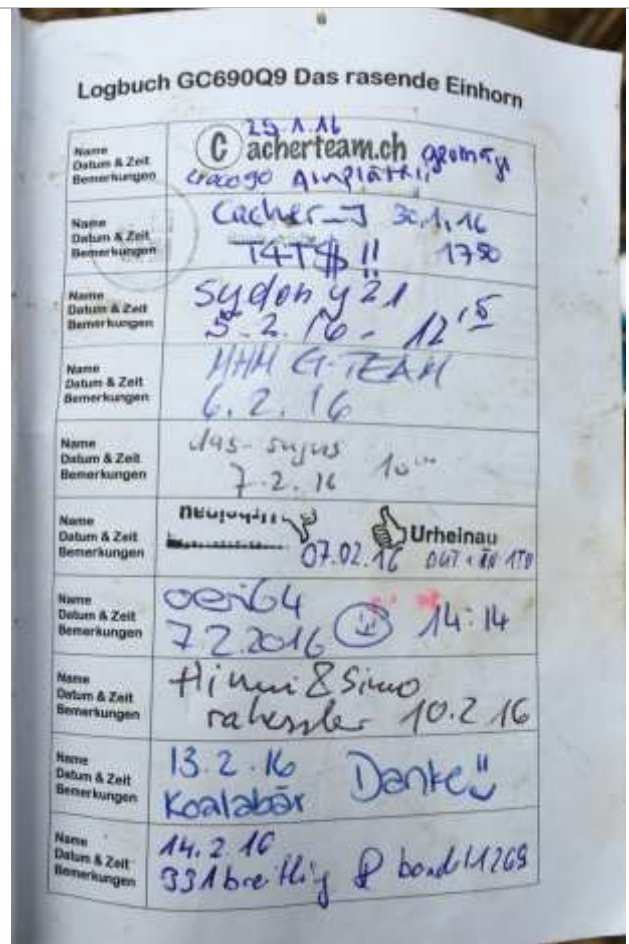 Logbuch GC690Q9 Das rasende Einhorn
Name
Datum & Zeit
Bemerkungen
25.1.16
Cacherteam.ch
Name
Datum & Zeit
Bemerkungen
Cacher_J 30.1.16
T4T$!! 1750
Name
Datum & Zeit
Bemerkungen
Sydony21
5.2.16 - 12
Name
Datum & Zeit
Bemerkungen
MHM G-TEAM
6.2.16
Name
Datum & Zeit
Bemerkungen
das-sugus
7.2.16 10
Name
Datum & Zeit
Bemerkungen
Urheinau
07.02.16
Name
Datum & Zeit
Bemerkungen
oeri64
7.2.2016 14:14
Name
Datum & Zeit
Bemerkungen
Himmi & Simo
rahessler 10.2.16
Name
Datum & Zeit
Bemerkungen
13.2.16 Danke
Koalabär
Name
Datum & Zeit
Bemerkungen
14.2.16